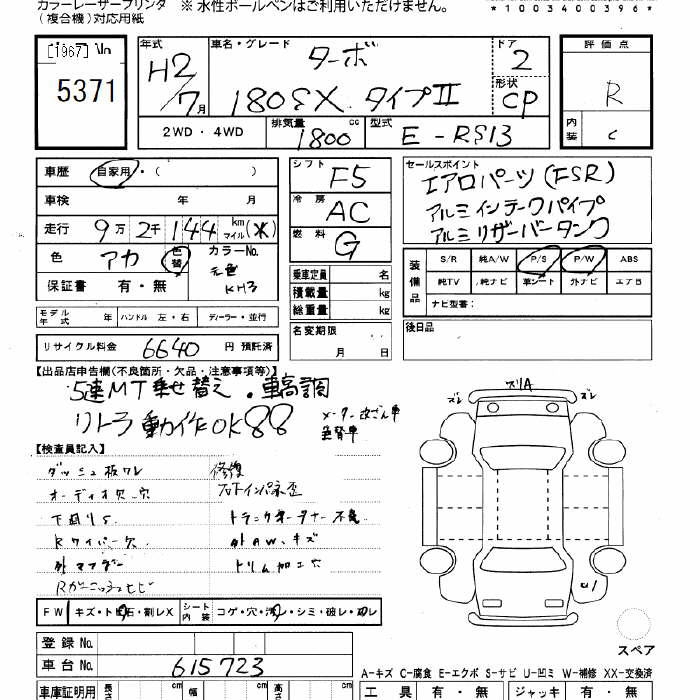 カラーレーザープリンタ ※ 水性ボールペンはご利用いただけません。
(複合機)対応用紙
*1003400396*
[1967] No
5371
年式 H2/7月
車名・グレード ターボ
180SX タイプII
ドア 2
形状 CP
評価点 R
内装 C
2WD・4WD 排気量 1800 cc 型式 E-RS13
車歴 自家用・( )
車検 年 月
走行 9万2千144 km マイル (*)
色 アカ 色替 カラーNo. 元色 KH3
保証書 有・無
シフト F5
冷房 AC
燃料 G
乗車定員 名
積載量 kg
総重量 kg
名変期限 月 日
セールスポイント
エアロパーツ(FSR)
アルミインテークパイプ
アルミリザーバータンク
装備品 S/R 純A/W P/S P/W ABS
純TV 純ナビ 革シート 外ナビ エアB
ナビ型番:
後日品
モデル年式 年 ハンドル 左・右 ディーラー・並行
リサイクル料金 6640 円 預託済
【出品店申告欄(不良箇所・欠品・注意事項等)】
5速MT乗せ替え・車高調
リトラ動作OK 88
メーター改ざん車
色替車
【検査員記入】
ダッシュ板ワレ 修復
オーディオ欠・穴
下廻りS
Rワイパー穴 外AW・キズ
外マフラー トリム加工穴
Rガーニッシュヒビ
ズレ ズリA ズレ
U1
FW キズ・ト石・割レX シート内装 コゲ・穴・汚レ・シミ・破レ・スレ
登録No.
車台No. 615723
スペア
A-キズ C-腐食 E-エクボ S-サビ U-凹ミ W-補修 XX-交換済
車庫証明用 長さ cm 幅 cm 高さ cm
工具 有・無 ジャッキ 有・無